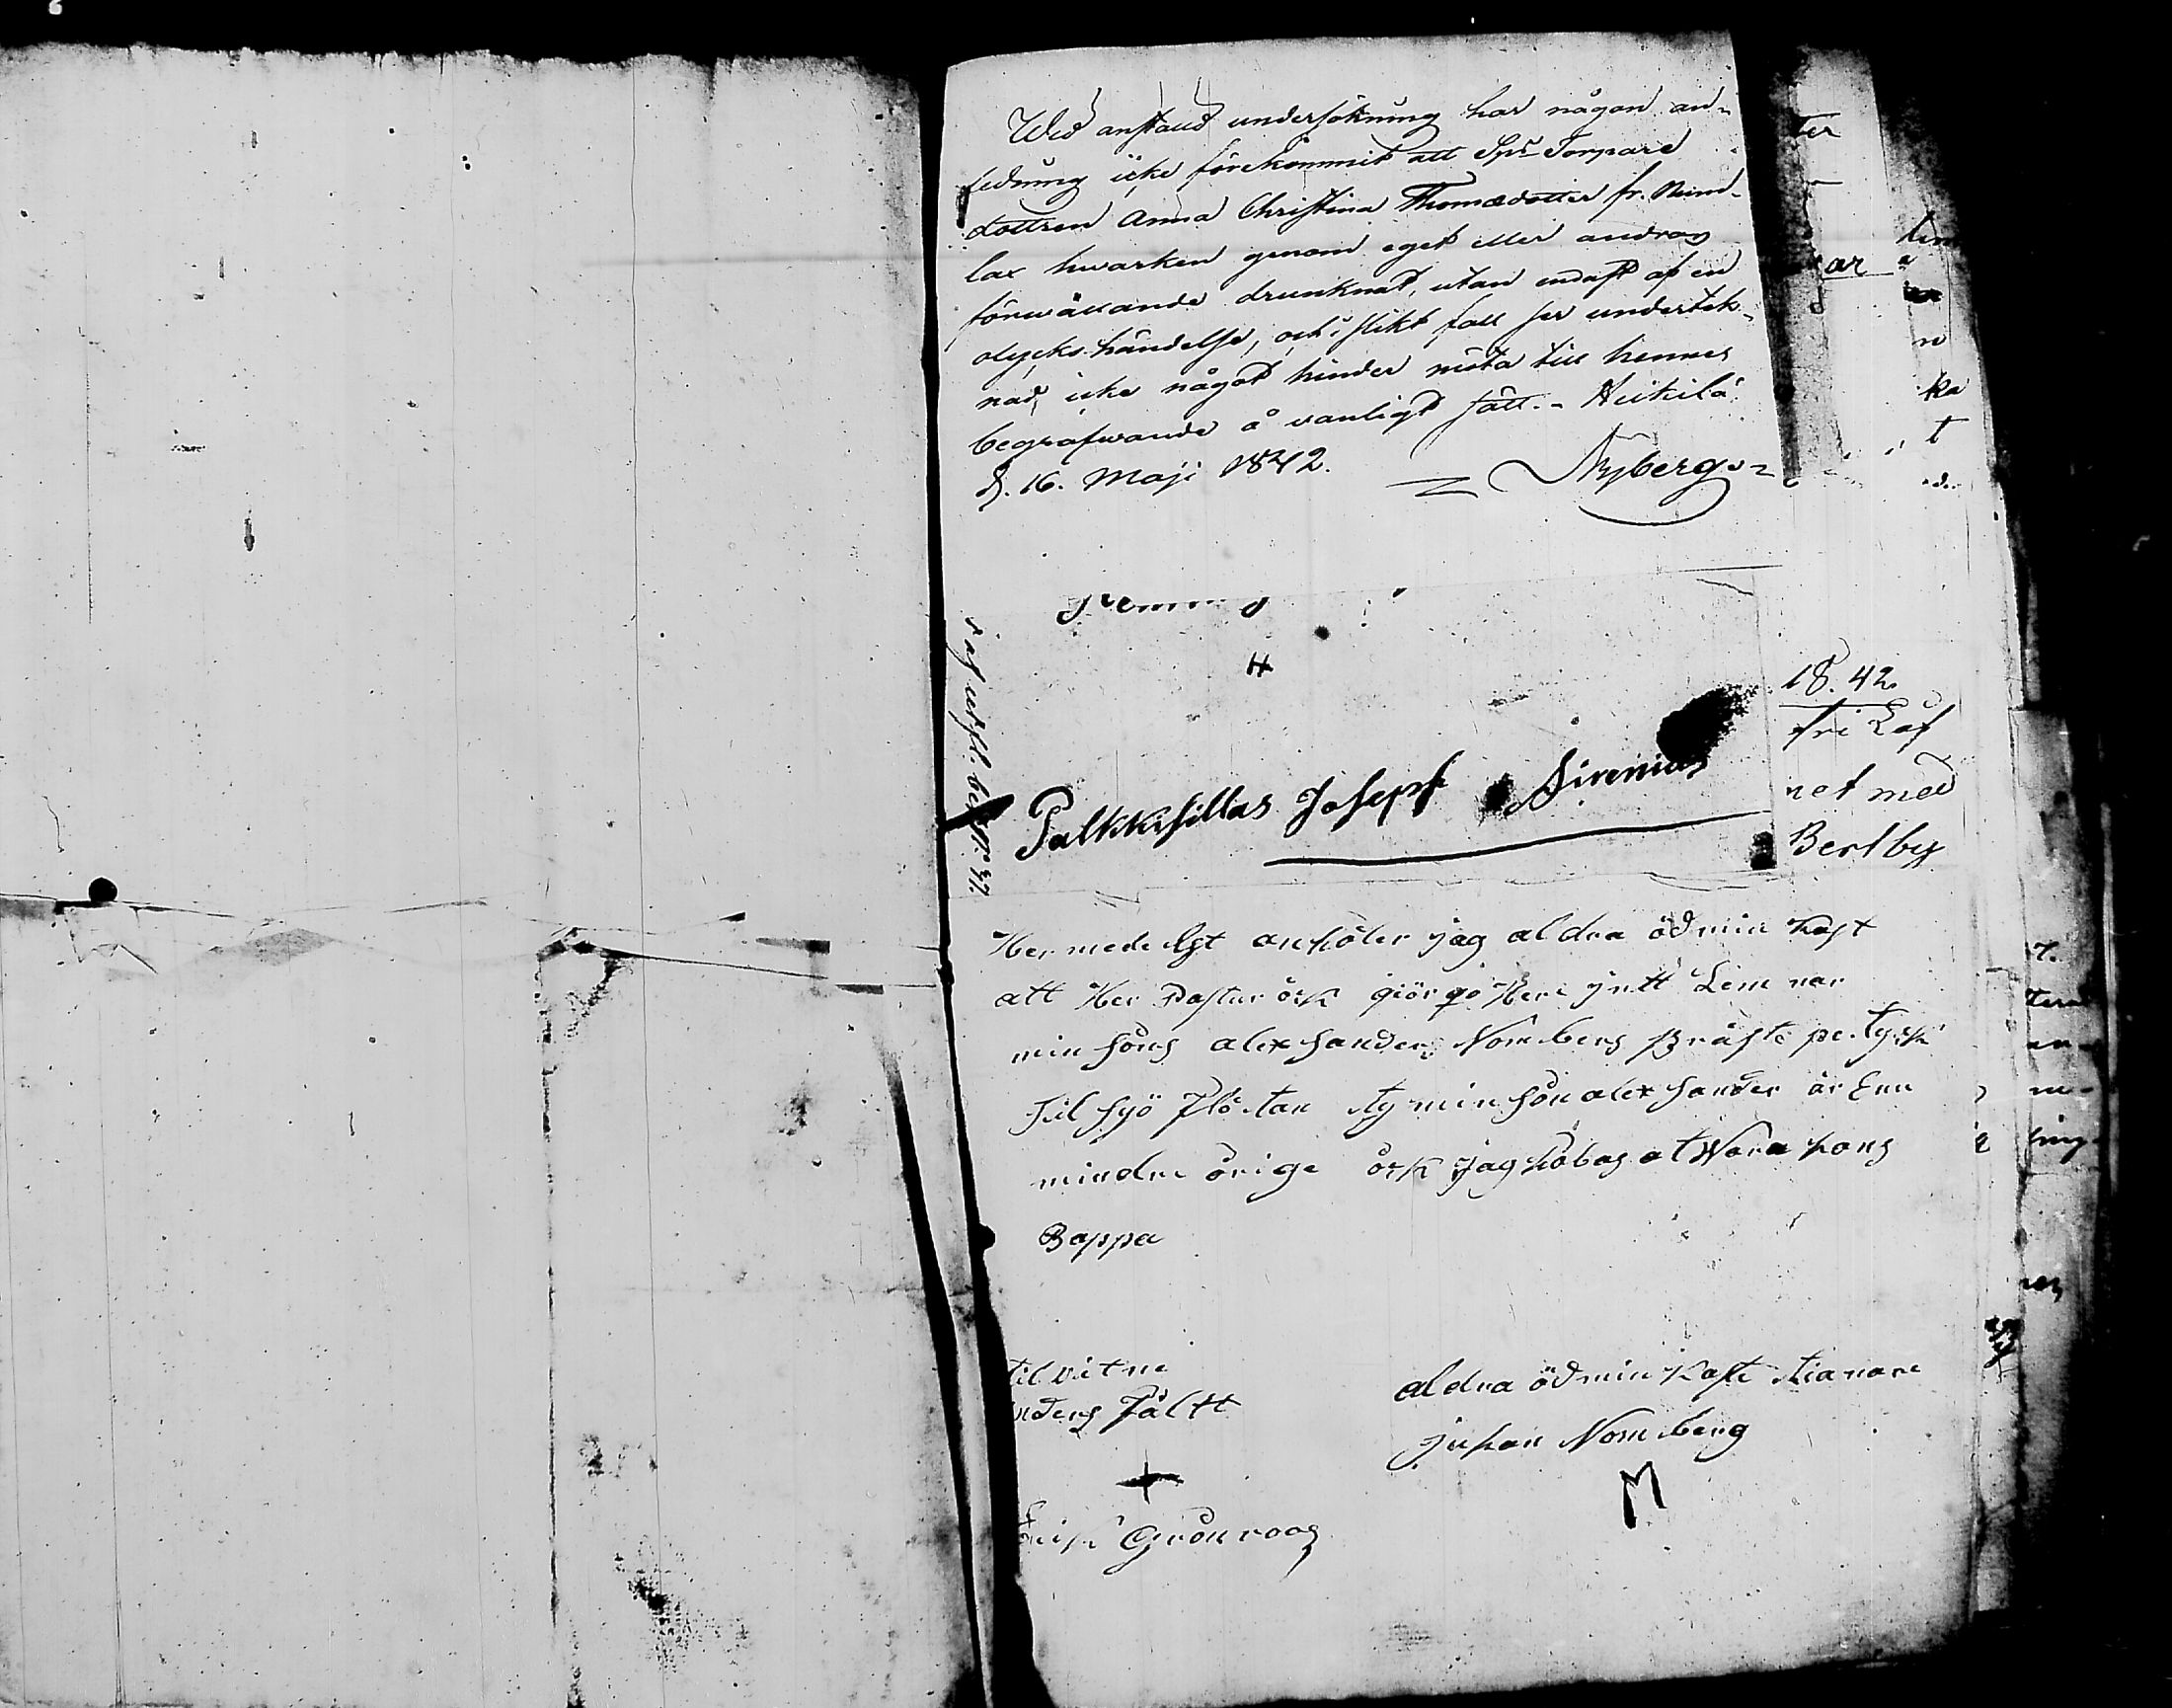 Wid anstald undersökning har någon an-
ledning icke förekommit att Sps Torpare
dottren Anna Christina Thomædotter fr. Nim-
lax hwarken genom eget eller andras
förwållande drunknat, utan endast af en
olyckshändelse, och i slikt fall ser undertek-
nad, icke något hinder möta till hennes
begrafwande å vanligt sätt. - Heikilä
d. 16. Maji 1842.
Nyberg
H
Palkkisillas Joseph Sirenius
18. 42
fri Låf
net med
Bertby
Hermedelst anhöler jag aldra ödmin kast
att Her Pastur ösk giör go Here
min sons alexsander Nornberg Präste petysk
Til syö Flötan ty min sön alexsander är Enn
mindre örige ösk jag höbas at Wara hans
Bappa
til vitne
nders Fältt
+
Erik Grönroos
aldra ödmin kaste tianare
juhan Nornberg
M
ter
ar
ka
t